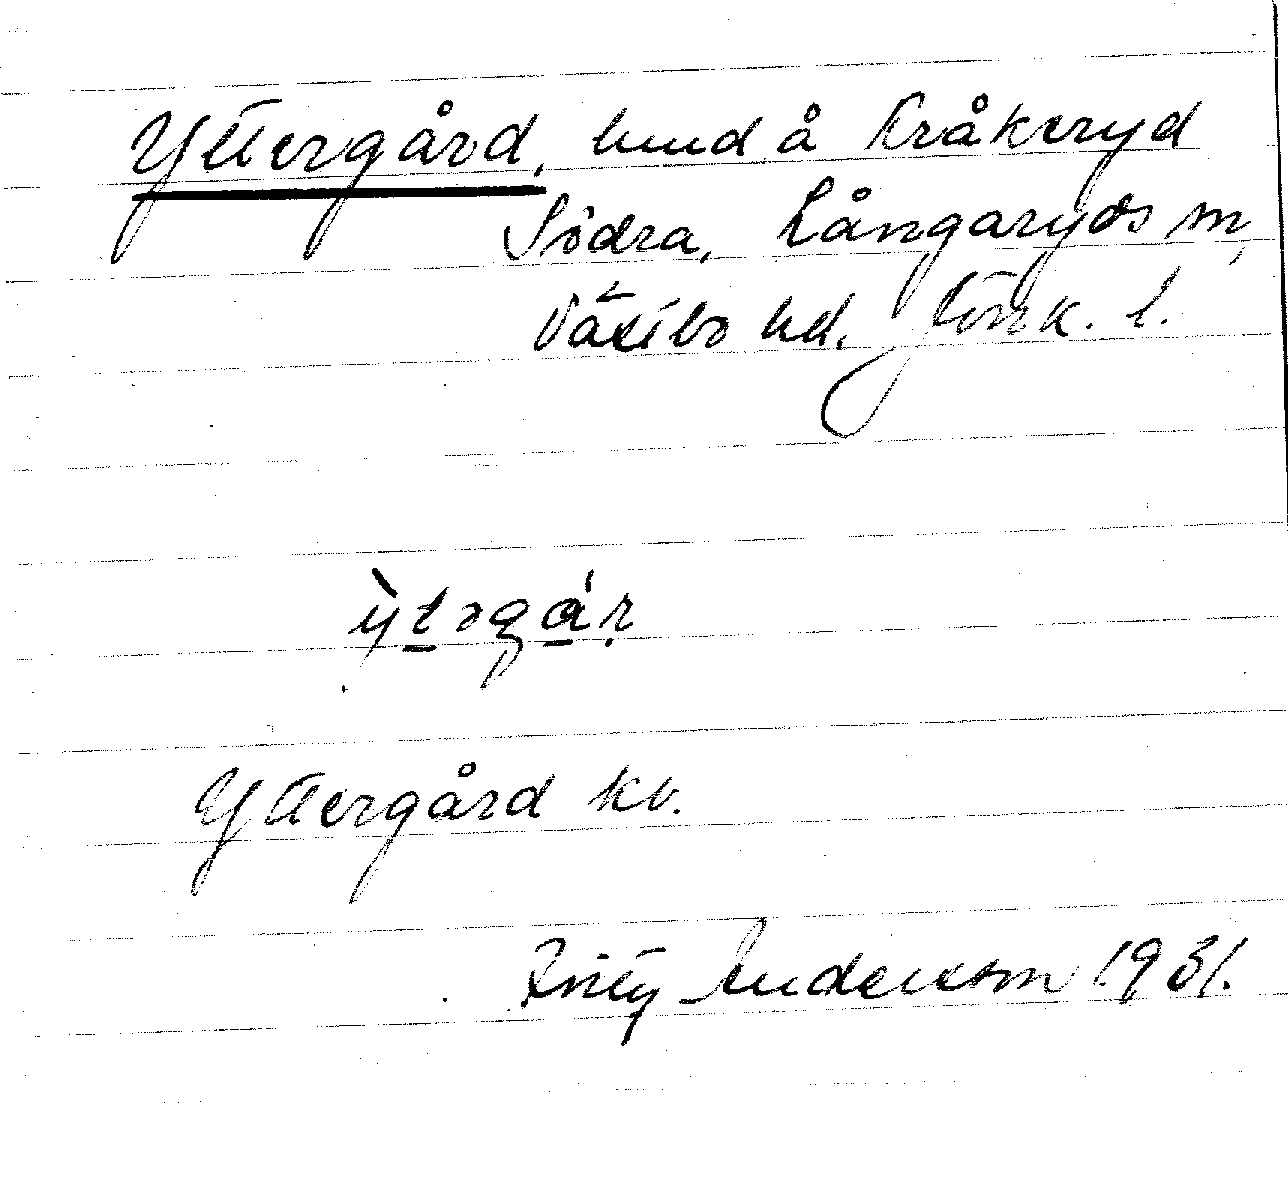 Yttergård, hmd å Kråkeryd
Södra, Långaryds sn,
Västbo hd. Jönk. l.
ỳtəgár
Yttergård kv.
Andersson 1931.